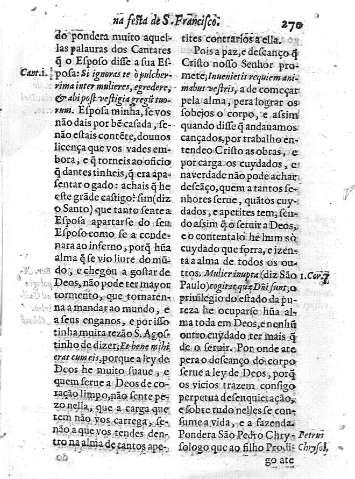 na festa de S. Francisco. 270
do pondera muito aquel-
las palauras dos Cantares
q̃ o Esposo disse a sua Es-
Cant.1. posa: Si ignoras te ò pulcher-
rima inter mulieres, egredere,
& abi post vestigia gregũ tuo-
rum. Esposa minha, se vos
não dais por bẽ casada, se-
não estais contẽte, douuos
licença que vos vades em-
bora, e q̃ torneis ao oficio
q̃ dantes tinheis, q̃ era apa-
sentar o gado: achais q̃ he
este grãde castigo? sim (diz
o Santo) que tanto sente a
Esposa apartarse do seu
Esposo como se a conde-
nara ao inferno, porq̃ hũa
alma q̃ se vio liure do mũ-
do, e chegou a gostar de
Deos, não pode ter mayor
tormento, que tornaren-
na a mandar ao mundo, e
a seus enganos, e por isso
tinha muita rezão S. Agos-
tinho de dizer; Et bene mihi
erat cum eis, porque a ley de
Deos he muito suaue, e
quem serue a Deos de co-
ração limpo, não sente pe-
zo nella, que a carga que
tem não vos carrega, se-
não a que vos tendes den-
tro na alma de tantos ape-
tites contrarios a ella.
Pois a paz, e descanço q̃
Cristo nosso Senhor pro-
mete; Inuenietis requiem ani-
mabus vestris, a de começar
pela alma, pera lograr os
sobejos o corpo, e assim
quando disse q̃ andauamos
cançados, por trabalho en-
tendeo Cristo as obras, e
por carga os cuydados, e
na verdade não pode achar
descãço, quem a tantos se-
nhores serue, quãtos cuy-
dados, e apetites tem; sen-
do assim q̃ o seruir a Deos,
e o contentalo he hum só
cuydado que forra, e izen-
ta a alma de todos os ou-
tros. Mulier inupta (diz São 1.Cor.7.
Paulo) cogitat quæ Dñi sunt, o
priuilegio do estado da pu-
reza he ocuparse hũa al-
ma toda em Deos, e nenhũ
outro cuydado ter mais q̃
de o seruir. Por onde ate
pera o descanço do corpo
serue a ley de Deos, porq̃
os vicios trazem consigo
perpetua desenquietação,
e sobre tudo nelles se con-
sume a vida, e a fazenda.
Pondera São Pedro Chry- Petrus
sologo que ao filho Prodi- Chrysol.
go ate